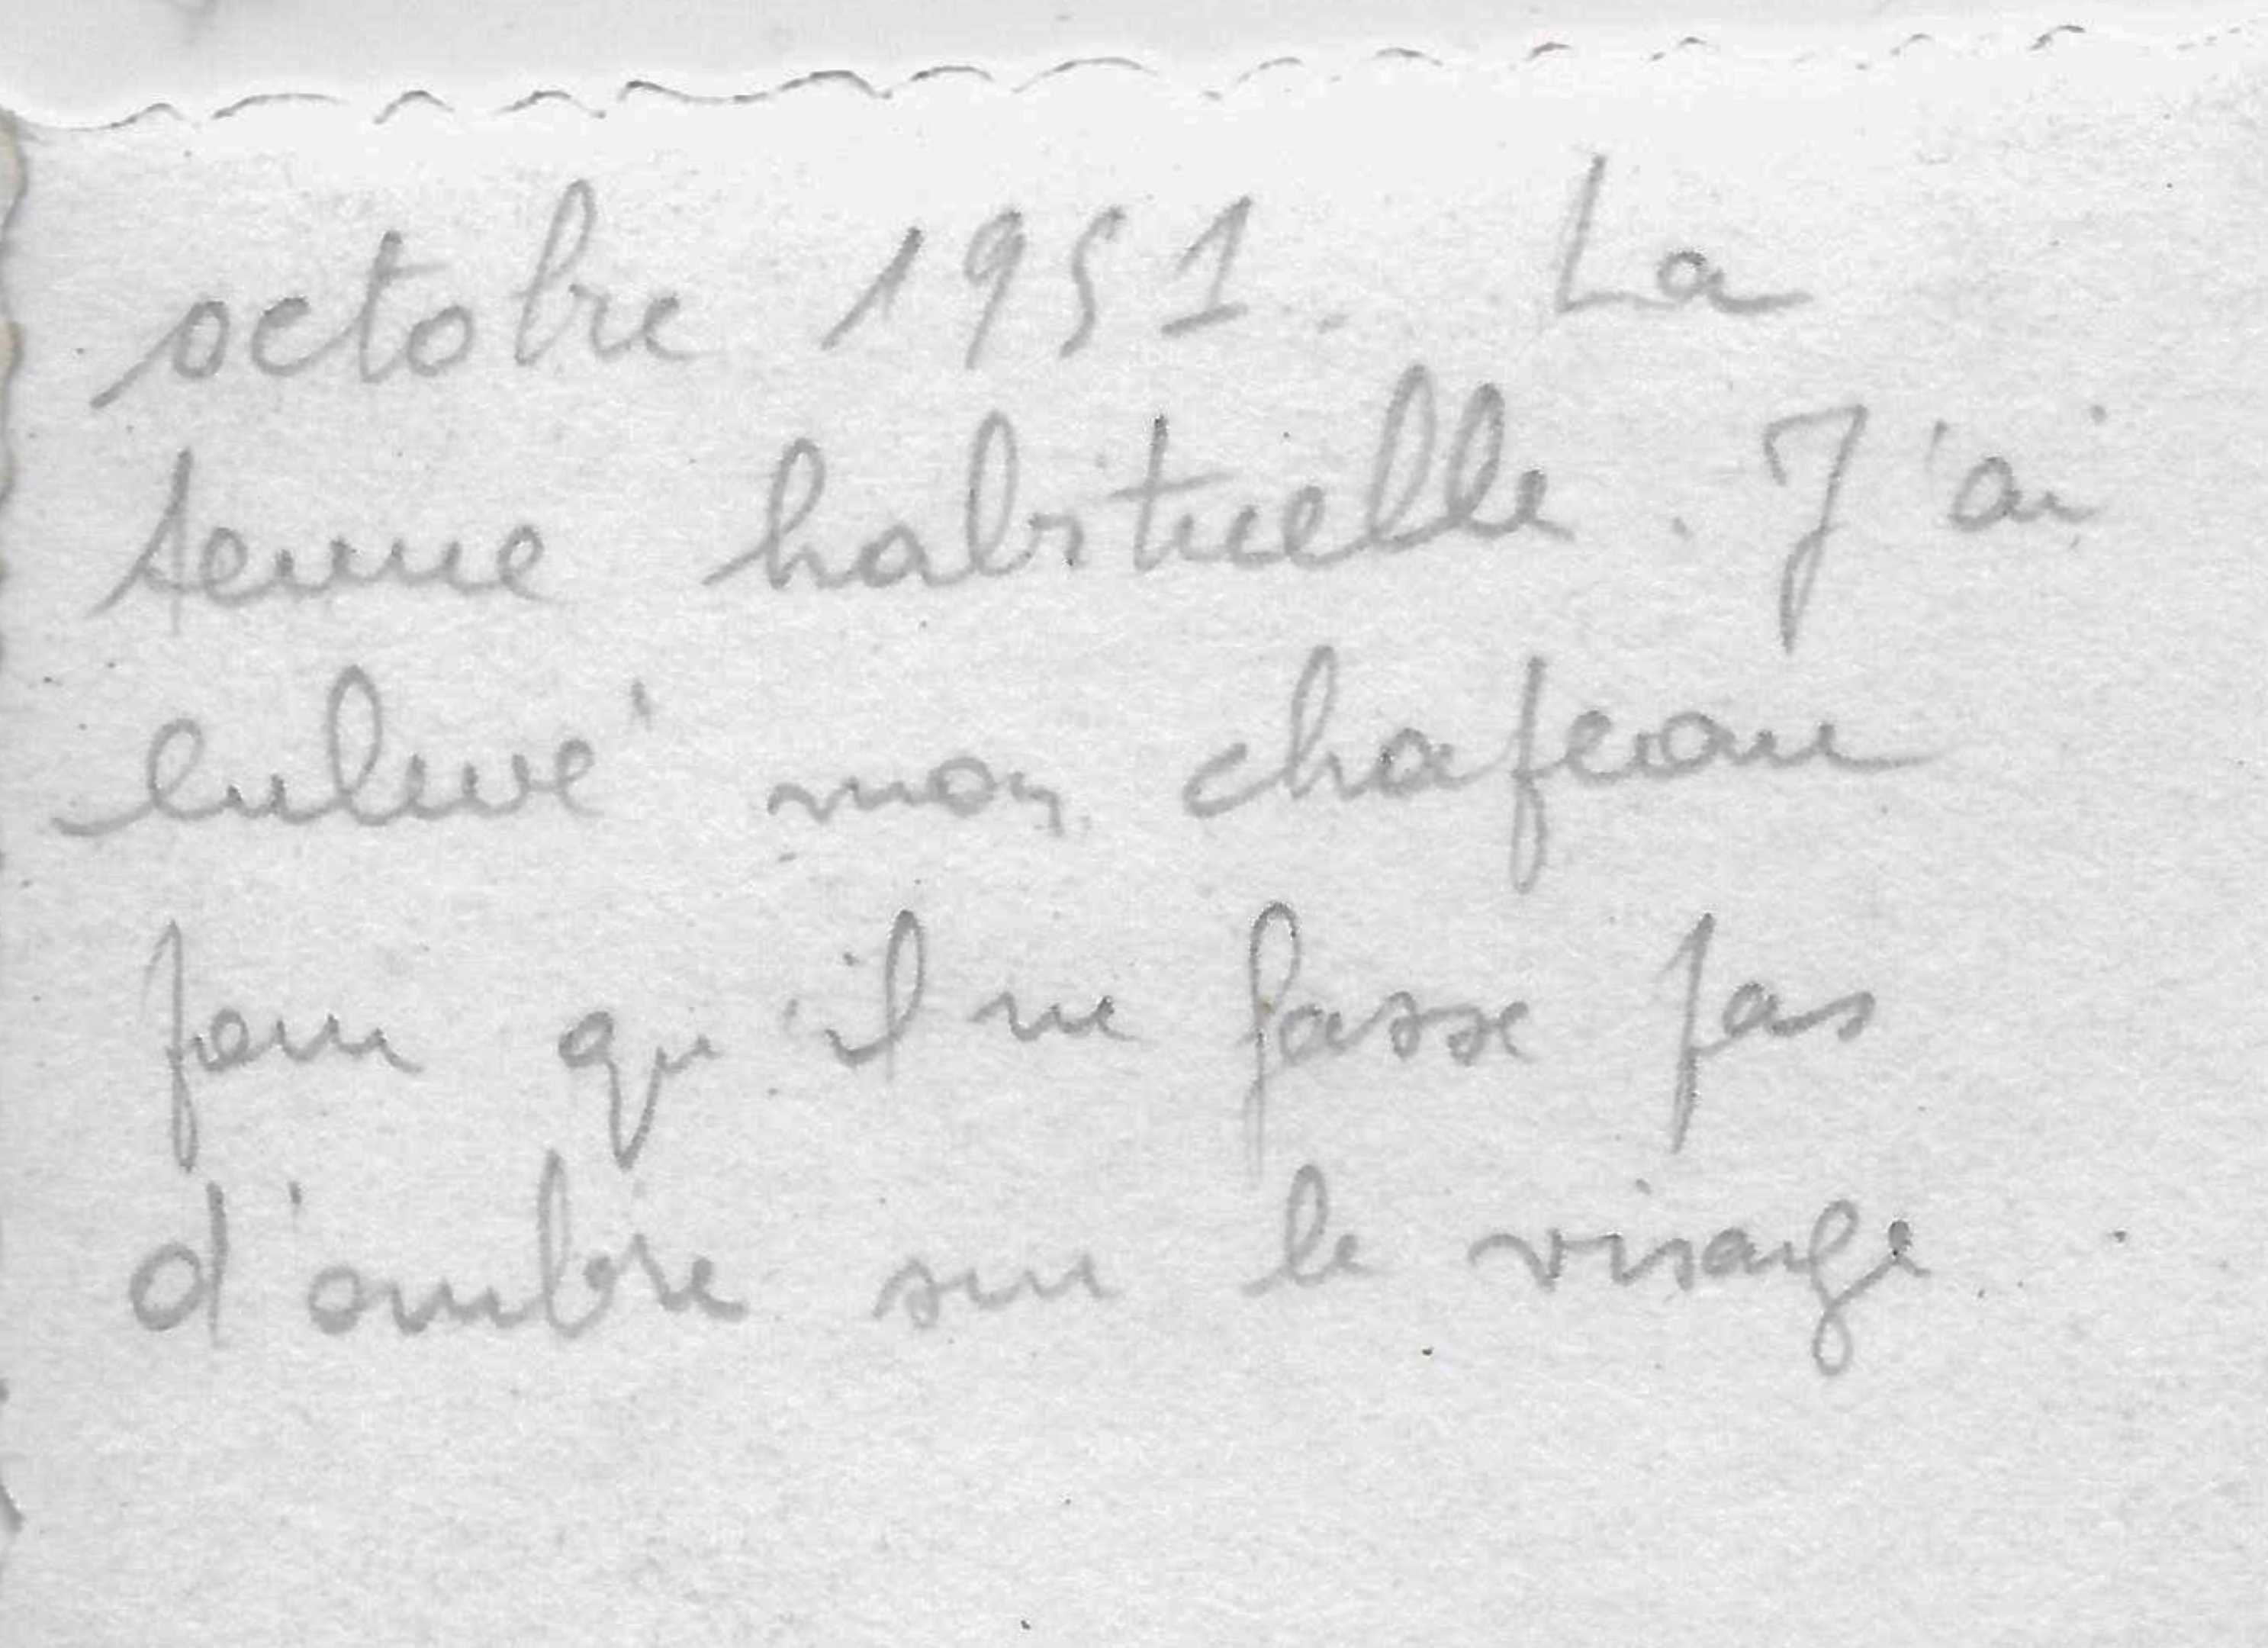 octobre 1951. La
tenue habituelle. J'ai
enlevé mon chapeau
pour qu'il ne fasse pas
d'ombre sur le visage.